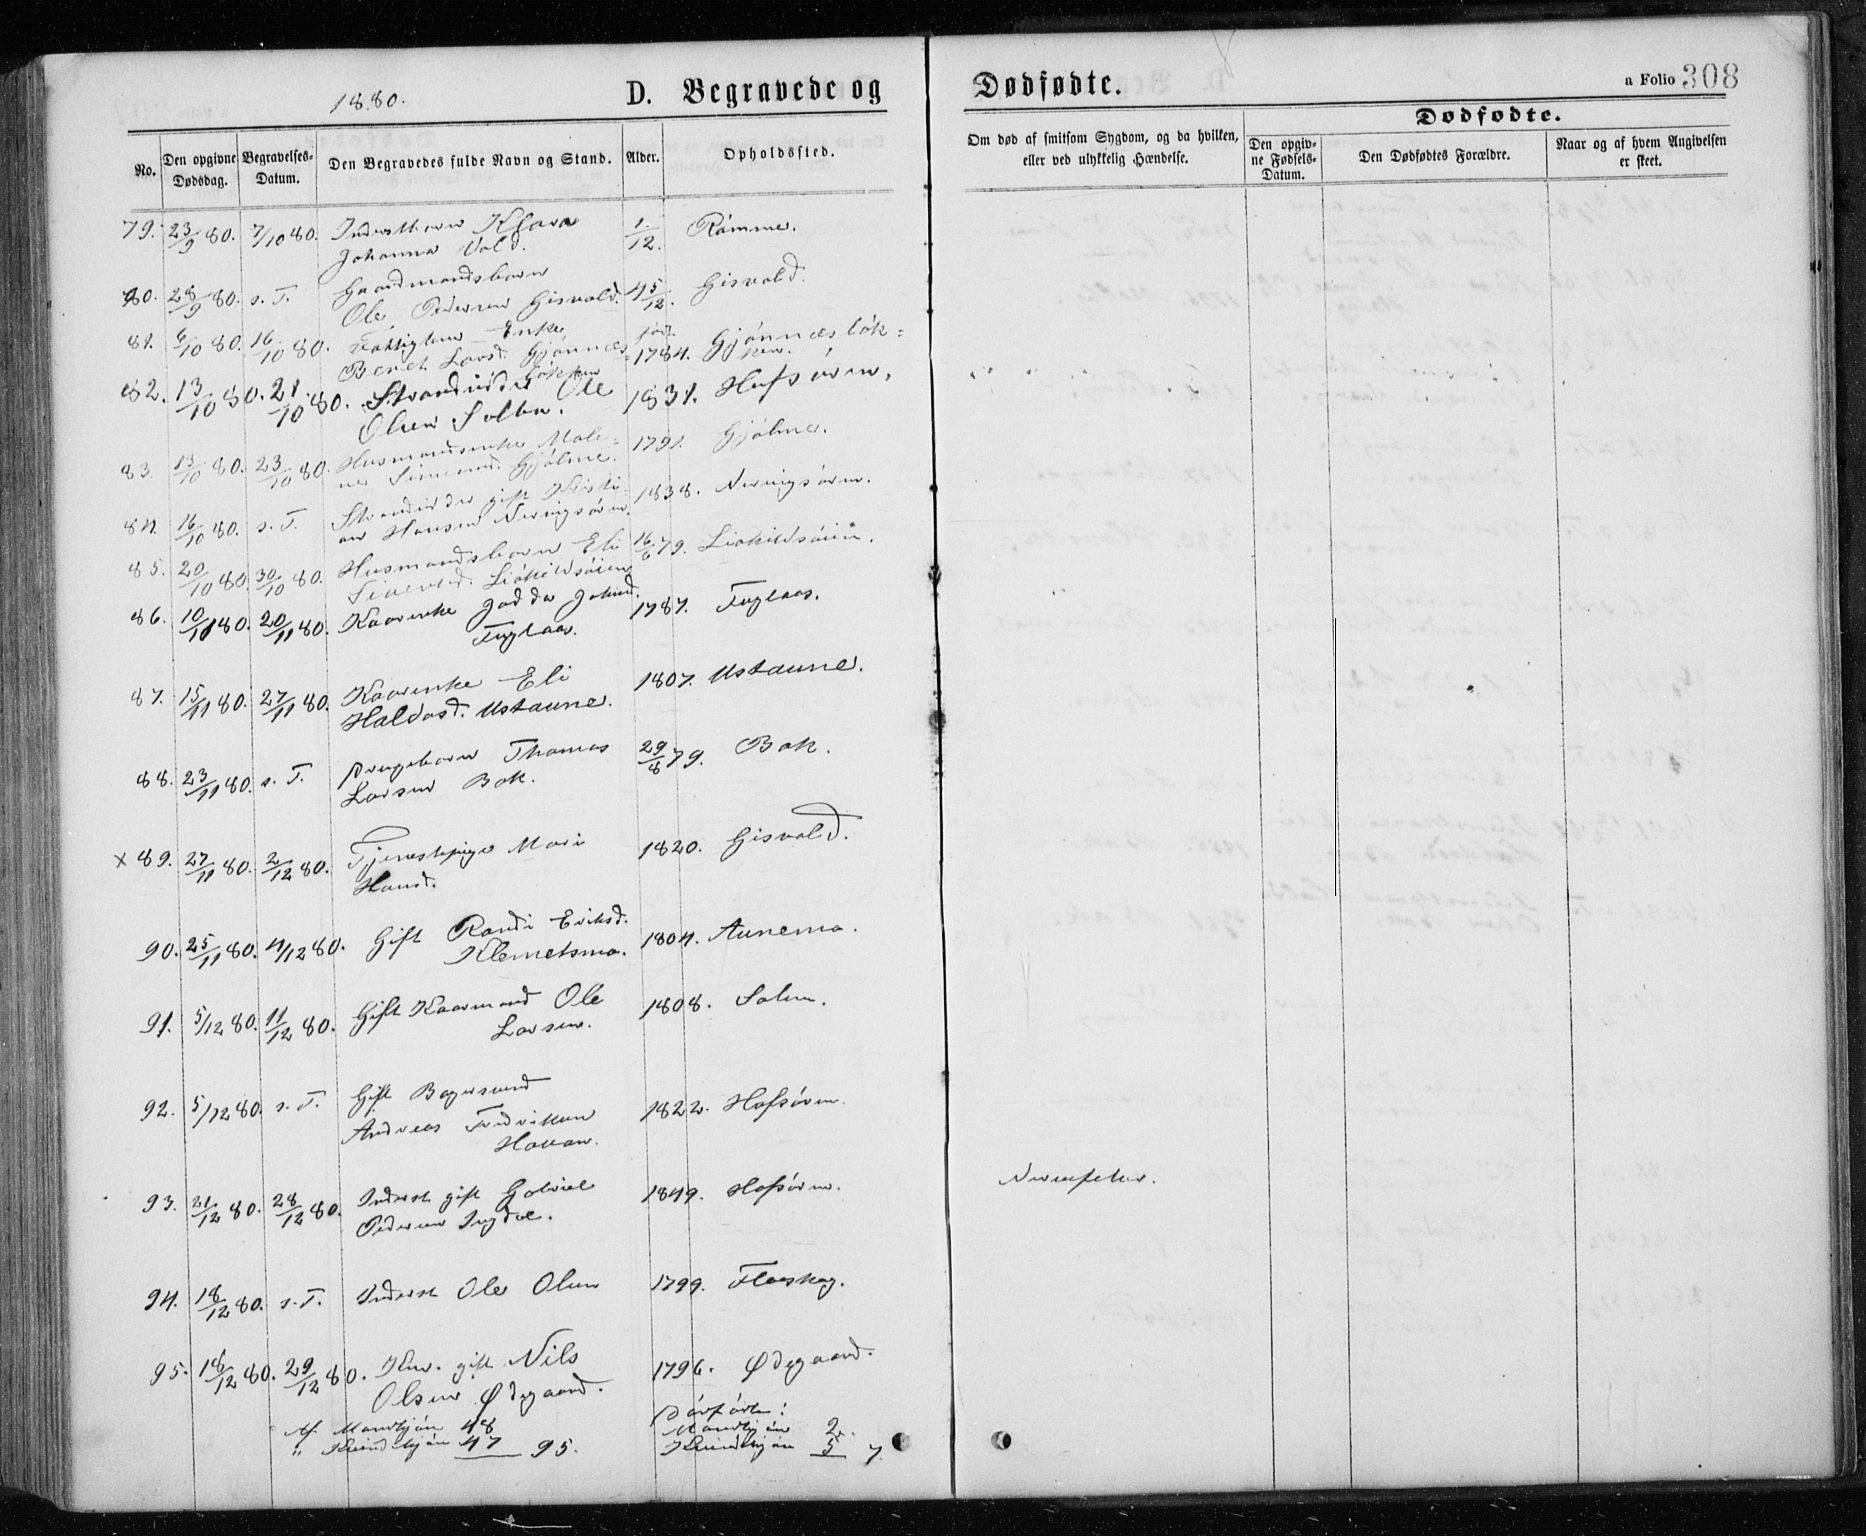 1880.
D. Begravede og
Dødfødte.
a Folio 308
No.
Den opgivne Dødsdag.
Begravelses-Datum.
Den Begravedes fulde Navn og Stand.
Alder.
Opholdssted.
Om død af smitsom Sygdom, og da hvilken,
eller ved ulykkelig Hændelse.
Dødfødte.
Den opgiv-
ne Fødsels-
Datum.
Den Dødfødtes Forældre.
Naar og af hvem Angivelsen
er skeet.
79. 23/9 80. 7/10 80. Inderstbarn Klara 1/12. Rømme.
Johanna Vold.
80. 28/9 80. s. T. Gaardmandsbarn 4 5/12. Gisvold.
Ole Pedersen Gisvold.
81. 6/10 80. 16/10 80. Fattiglem Enke født 1784. Gjønnesløk=
Beret Larsd. Gjønnes= ken.
løkken
82. 13/10 80. 21/10 80. Strandsidder Ole 1831. Hofsøren.
Olsen Solbu.
83. 13/10 80. 23/10 80. Husmandsenke Male= 1791. Gjølme.
ne Simensd. Gjølme.
84. 16/10 80. s. T. Strandsidder gift Kristi= 1838. Nervigsøren.
an Hansen Nervigsøren
85. 20/10 80. 30/10 80. Husmandsbarn Eli 16/6 79. Liøkildsøien.
Sivertsd. Liøkildsøien
86. 10/11 80. 20/11 80. Kaarenke Jadda Johnsd. 1787. Fuglaas.
Fuglaas.
87. 15/11 80. 27/11 80. Kaarenke Eli 1807. Ustaune.
Haldosd. Ustaune.
88. 23/11 80. s. T. Drengebarn Thomas 29/8 79. Bak.
Larsen Bak.
x 89. 27/11 80. 2/12 80. Tjenestepige Mari 1820. Gisvold.
Hansd.
90. 25/11 80. 4/12 80. Gift Randi Eriksd. 1804. Aunemo.
Klemetsmo.
91. 5/12 80. 11/12 80. Gift Kaarmand Ole 1808. Solem.
Larsen.
92. 5/12 80. s. T. Gift Bagersvend
Andreas Fredriksen 1822. Hofsøren.
93. 21/12 80. 28/12 80. Inderst gift Gabriel 1849. Hofsøren. Nervefeber.
Pedersen Ingdal.
94. 18/12 80. s. T. Inderst Ole Olsen 1799. Flaaskog.
95. 16/12 80. 29/12 80. Kaar. gift Nils 1796. Ødegaard.
Olsen Ødegaard.
Af Mandkjøn 48
" Kvindekjøn 47 95.
Dødfødte:
Mandkjøn 2.
Kvindekjøn 5 7.